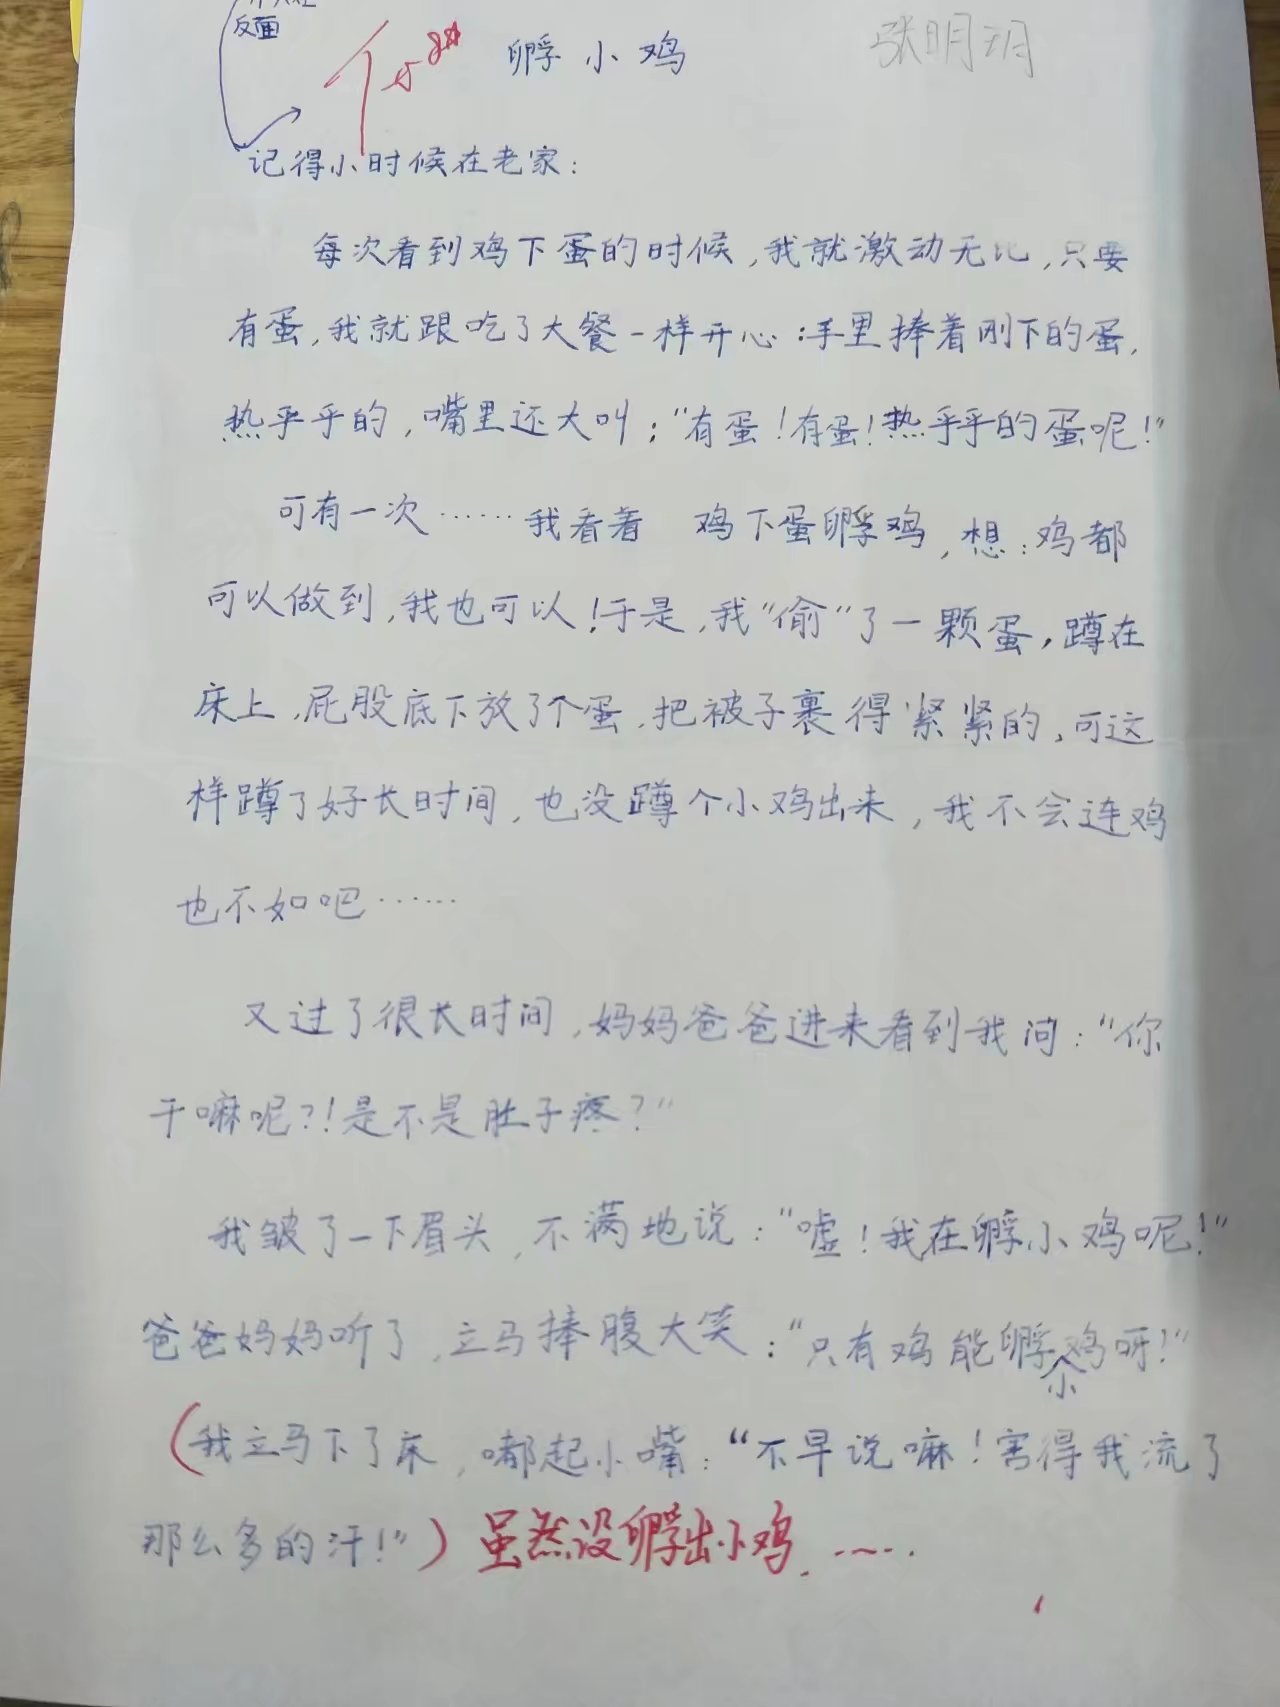 反面
孵小鸡
张明玥
记得小时候在老家：
每次看到鸡下蛋的时候，我就激动无比，只要
有蛋，我就跟吃了大餐一样开心：手里捧着刚下的蛋，
热乎乎的，嘴里还大叫："有蛋！有蛋！热乎乎的蛋呢！"
可有一次……我看着 鸡下蛋孵鸡，想：鸡都
可以做到，我也可以！于是，我"偷"了一颗蛋，蹲在
床上，屁股底下放了个蛋，把被子裹得紧紧的，可这
样蹲了好长时间，也没蹲个小鸡出来，我不会连鸡
也不如吧……
又过了很长时间，妈妈爸爸进来看到我问："你
干嘛呢？！是不是肚子疼？"
我皱了一下眉头，不满地说："嘘！我在孵小鸡呢！"
爸爸妈妈听了，立马捧腹大笑："只有鸡能孵小鸡呀！"
（我立马下了床，嘟起小嘴："不早说嘛！害得我流了
那么多的汗！"）虽然没孵出小鸡，……